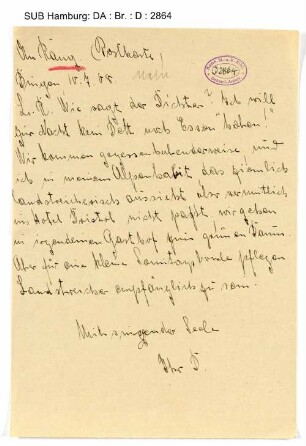 SUB Hamburg: DA : Br. : D : 2864
An Räuz Postkarte!
Bingen 10.7.08.
L. R. Wie sagt der Dichter? Ich will
zur Nacht kein Bett noch Essen haben!
Wir kommen gegessenhabenderweise und
ich in meinem Alpenhabit das ziemlich
landstreicherisch aussieht also vermutlich
ins Hotel Bristol nicht paßt, wir gehen
in irgendeinen Gasthof zum grünen Baum.
Aber für eine kleine Sonntagsfreude pflegen
Landstreicher empfänglich zu sein.
Mit singender Seele
Ihr D.